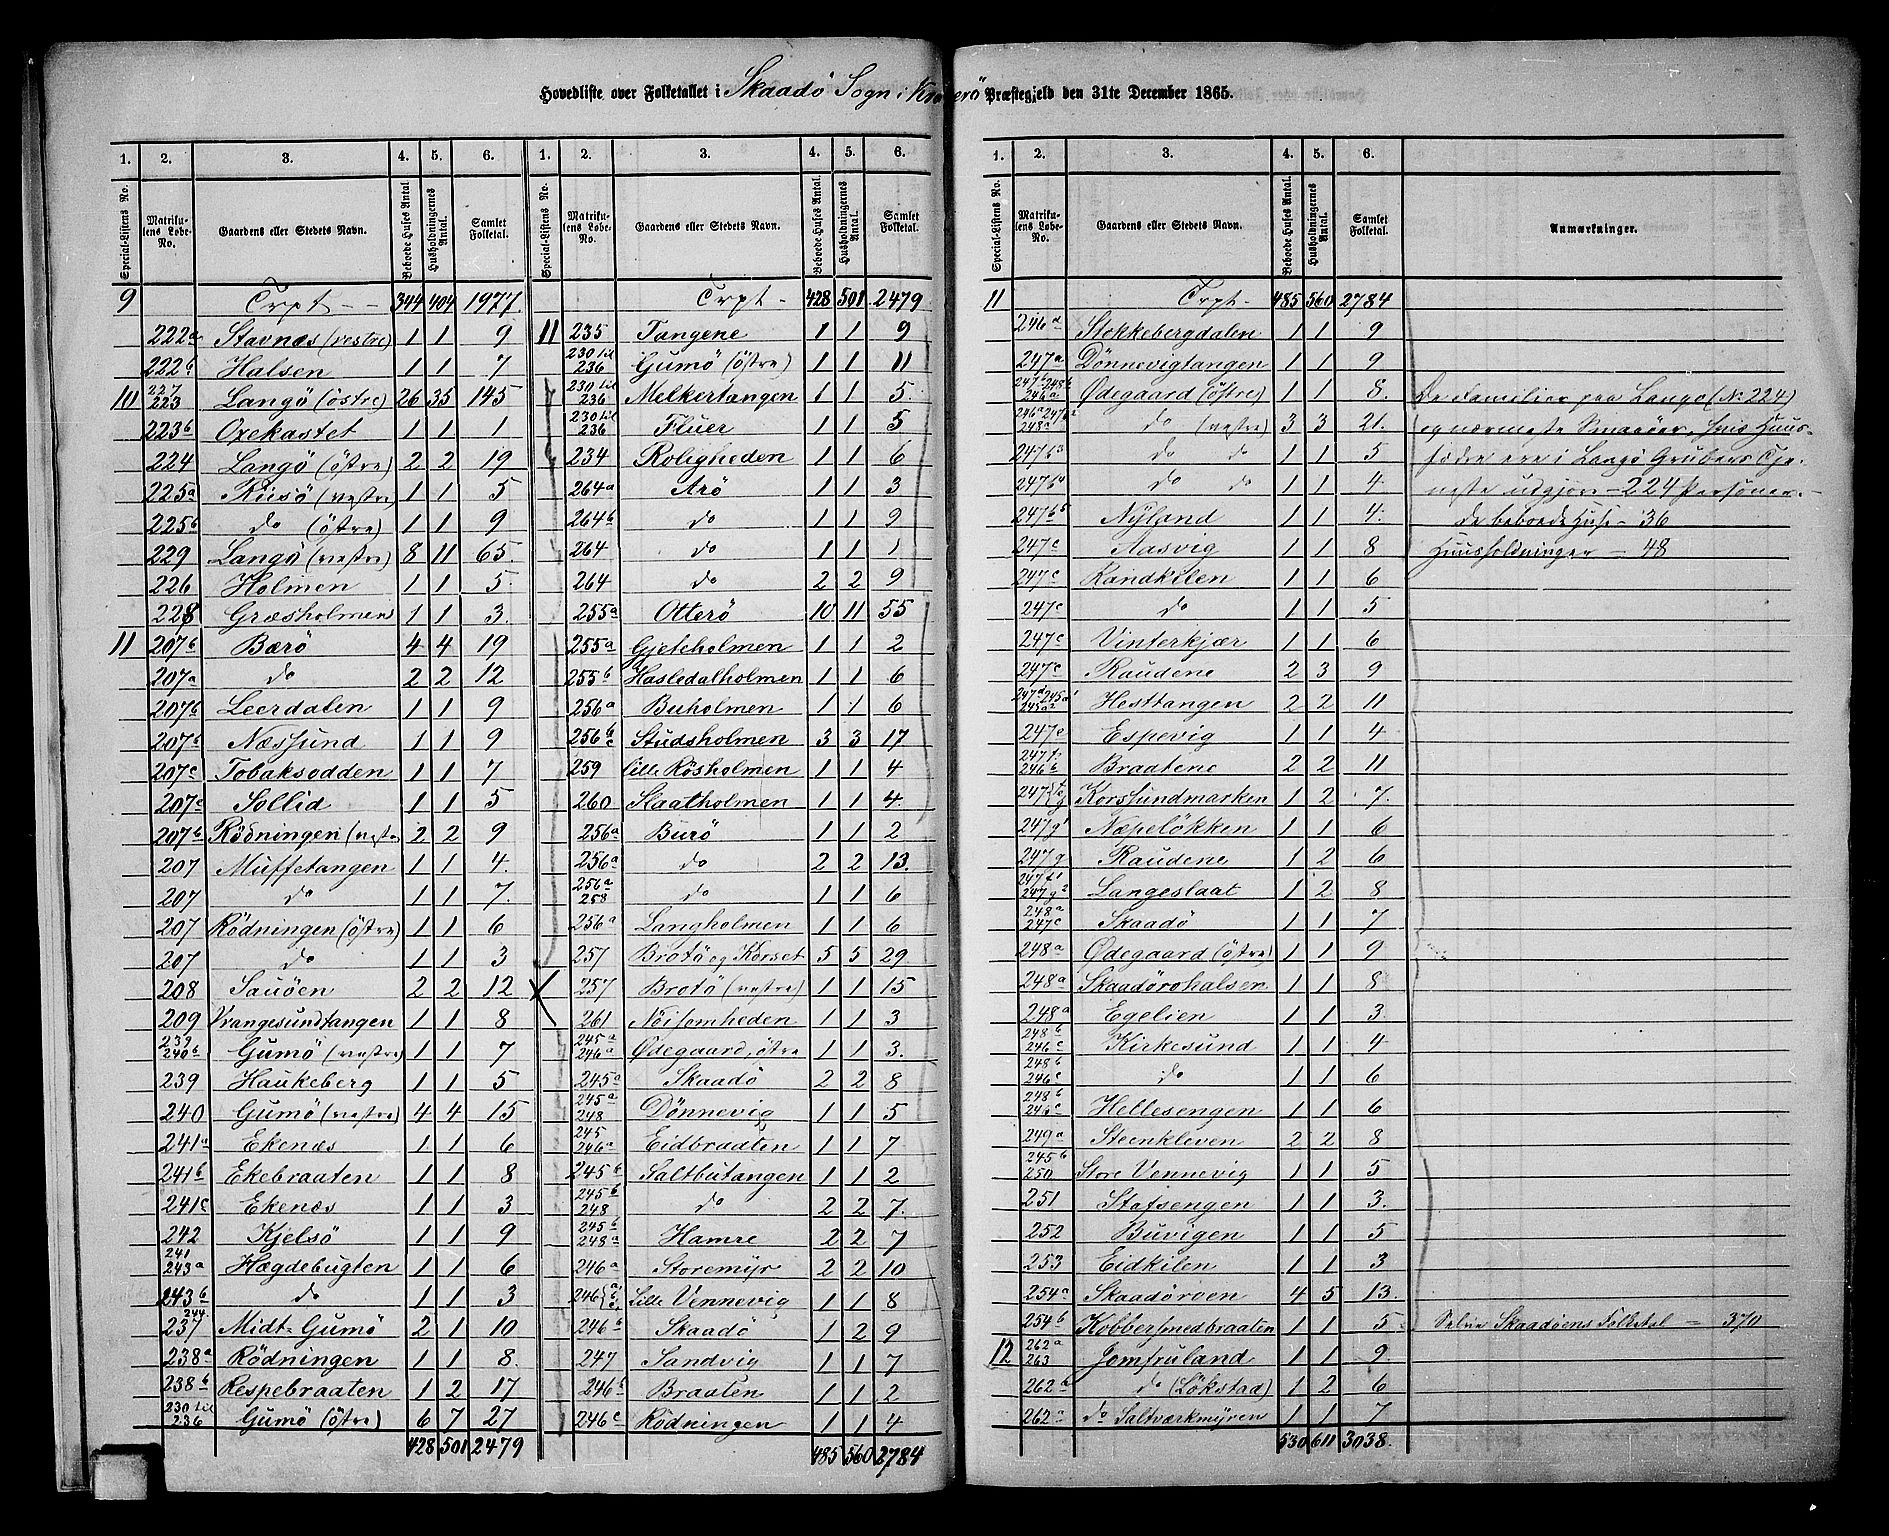 Hovedliste over Folketallet i Skaadö Sogn i Kragerö Præstegjeld den 31te December 1865.
1. 2. 3. 4. 5. 6.
Special-Listens No. Matrikulens Løbe-No. Gaardens eller Stedets Navn. Beboede Huses Antal. Husholdningernes Antal. Samlet Folketal.
9 Trpt - - 344 404 1977.
222a Stavnæs (vestre) 1 1 9
222b Halsen 1 1 7
10 227 223 Langö (östre) 26 35 145
223b Oxekastet 1 1 1
224 Langö (östre) 2 2 19
225a Riisö (vestre) 1 1 5
225b do (östre) 1 1 9
229 Langö (vestre) 8 11 65.
226 Holmen 1 1 5.
228 Græsholmen 1 1 3.
11 207b Bærö 4 4 19
207a do 2 2 12
207b Leerdalen 1 1 9
207b Næssund 1 1 9
207c Tobaksodden 1 1 7
207c Sollid 1 1 5
207b Rödningen (vestre 2 2 9
207 Muffetangen 1 1 4.
207 do 1 1 7.
207 Rödningen (östre) 1 1 6
207 do 1 1 3
208 Sauöen 2 2 12
209 Vrangesundtangen 1 1 8
239 240b Gumö (vestre) 1 1 7
239 Haukeberg 1 1 5
240 Gumö (vestre) 4 4 15
241a Ekenæs 1 1 6
241b Ekebraaten 1 1 8
241c Ekenæs 1 1 3
242 Kjelsö 1 1 9
241 243a Hægdebugten 1 1 6
243b do 1 1 3
244 237 Midt-Gumö 2 1 10
238a Rödningen 1 1 8.
238b Respebraaten 1 2 17
230 til 236 Gumö (östre) 6 7 27
428 501 2479
1. 2. 3. 4. 5. 6.
Special-Listens No. Matrikulens Løbe-No. Gaardens eller Stedets Navn. Beboede Huses Antal. Husholdningernes Antal. Samlet Folketal.
Trpt - 428 501 2479
11 235 Tangene 1 1 9
230 til 236 Gumö (östre) 1 1 11
230 til 236 Melkertangen 1 1 5.
230 til 236 Fluer 1 1 5
234 Roligheden 1 1 6
264a Arö 1 1 3
264b do 1 1 9
264 do 1 1 1
264 do 2 2 9
255a Otterö 10 11 55
255a Gjeteholmen 1 1 2
255b Hasledalholmen 1 1 6
256a Buholmen 1 1 6
256b c Studsholmen 3 3 17
259 Lille Rösholmen 1 1 4
260 Slaatholmen 1 1 4.
256a Burö 1 1 2
256a do 2 2 13.
256a 258 do 1 1 6
256a Langholmen 1 1 6
257 Brotö og Korset 5 5 29
257 Brotö (vestre) 1 1 15
261 Nöisomheden 1 1 3
245a 246a Ödegaard, östre 1 1 3.
245a Skaadö 2 2 8
245a 248 Dönnevig 1 1 5
245 246a Eidbraaten 1 1 7
245b Saltbutangen 1 1 2
245b 248 do 2 2 7.
245b 248a Hamre 2 2 7
246a Storemyr 2 2 10
246 Lille Vennevig 1 1 8
246b Skaadö 1 2 9
247 Sandvig 1 1 7
246b Braaten 1 1 2
246c Rödningen 1 1 4
485 560 2784
1. 2. 3. 4. 5. 6.
Special-Listens No. Matrikulens Løbe-No. Gaardens eller Stedets Navn. Beboede Huses Antal. Husholdningernes Antal. Samlet Folketal. Anmærkninger.
11 Trpt - 485 560 2784
246d Stokkebergdalen 1 1 9
247a Dönnevigtangen 1 1 9
247a 248b 246a Ödegaard (östre) 1 1 8. De Familier paa Langö (No 224)
248a do (vestre) 3 3 21. og nærmeste Smaaöer, hvis Huus-
247b3 do do 1 1 5 fædre ere i Langö Grubers Tje-
247b4 do do 1 1 4 neste udgjöre - 224 Personer. -
247b5 Nyland 1 1 4. de beboede Huse - 36
247c Aasvig 1 1 8 Huusholdninger - 48
247c Randkilen 1 1 6
247c do 1 1 5
247c Vinterkjær 1 1 6
247c Raudene 2 3 9
247d 245a1 245a2 Hesttangen 2 2 11
247e Espevig 1 1 4
247f. 246b Braatene 2 2 11
247 Korssundmarken 1 2 7.
247g1 Næpelökken 1 1 6
247g Raudene 1 2 6
247f1 247g2 Langeslaat 1 2 8
248a 247c Skaadö 1 1 7
248a Ödegaard (östre) 1 1 9
248a Skaadörohalsen 1 1 8
248a Egelien 1 1 3.
248b 246c Kirkesund 1 1 4
248b 246c do 1 1 6
248b 246c Hellesengen 1 1 6
249a Steenkleven 2 2 8
245b 250 Store Vennevig 1 1 5
251 Stofsengen 1 1 3.
252 Buvigen 1 1 5
253 Eidkilen 1 1 3
254a Skaadöroen 4 5 13.
254b Kobbersmedbraaten 1 1 5 Selve Skaadöens Folketal = 370
12 262a 263 Jomfruland 1 1 9.
262b do (Lökstad) 1 2 6
262a do Saltværkmyren 1 1 7
530 611 3038.